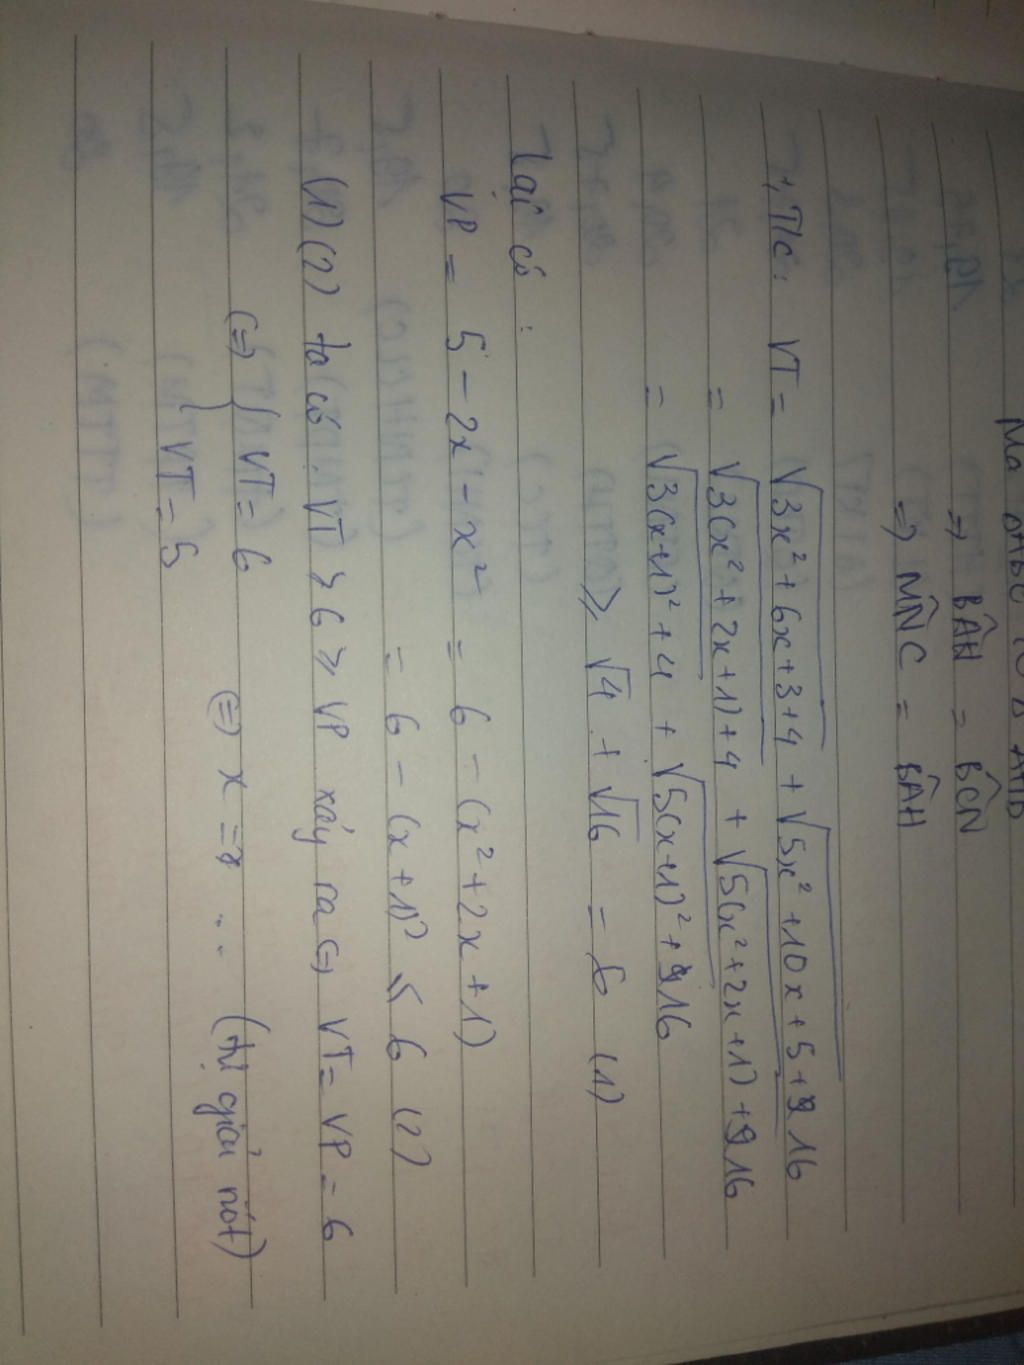 Mà
=> BÂH = BĈN
=> MN̂C = BÂH
T/c: VT = √3x² + 6x + 3 + 4 + √5x² + 10x + 5 + 16
= √3(x² + 2x + 1) + 4 + √5(x² + 2x + 1) + 16
= √3(x + 1)² + 4 + √5(x + 1)² + 16
≥ √4 + √16 = 6 (1)
Lại có :
VP = 5 - 2x - x² = 6 - (x² + 2x + 1)
= 6 - (x + 1)² ≤ 6 (2)
(1) (2) ta có VT ≥ 6 ≥ VP xảy ra <=> VT = VP = 6
(=) { VT = 6 (=) x = .. (tự giải nót)
VT = 5